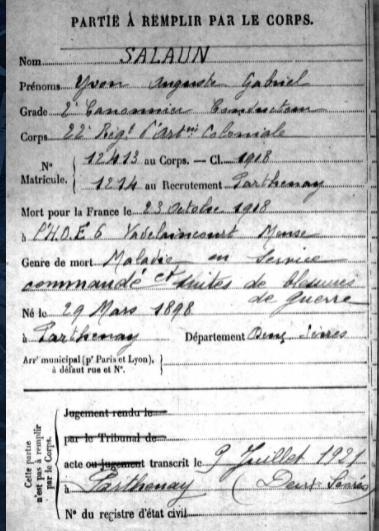 PARTIE À REMPLIR PAR LE CORPS.
Nom SALAUN
Prénoms Yvon Auguste Gabriel
Grade 2e Canonnier Conducteur
Corps 22e Régt d'Arties Coloniale
N° Matricule. { 12413 au Corps. — Cl. 1918
1214 au Recrutement Parthenay
Mort pour la France le 23 Octobre 1918
à l'H.O.E 6 Vadelaincourt Meuse
Genre de mort Maladie en Service
commandé et suites de blessures
de guerre
Né le 29 Mars 1898
à Parthenay Département Deux Sèvres
Arrt municipal (pr Paris et Lyon),
à défaut rue et N°.
Cette partie n'est pas à remplir par le Corps.
Jugement rendu le
par le Tribunal de
acte ou jugement transcrit le 9 Juillet 1921
à Parthenay (Deux-Sèvres)
N° du registre d'état civil